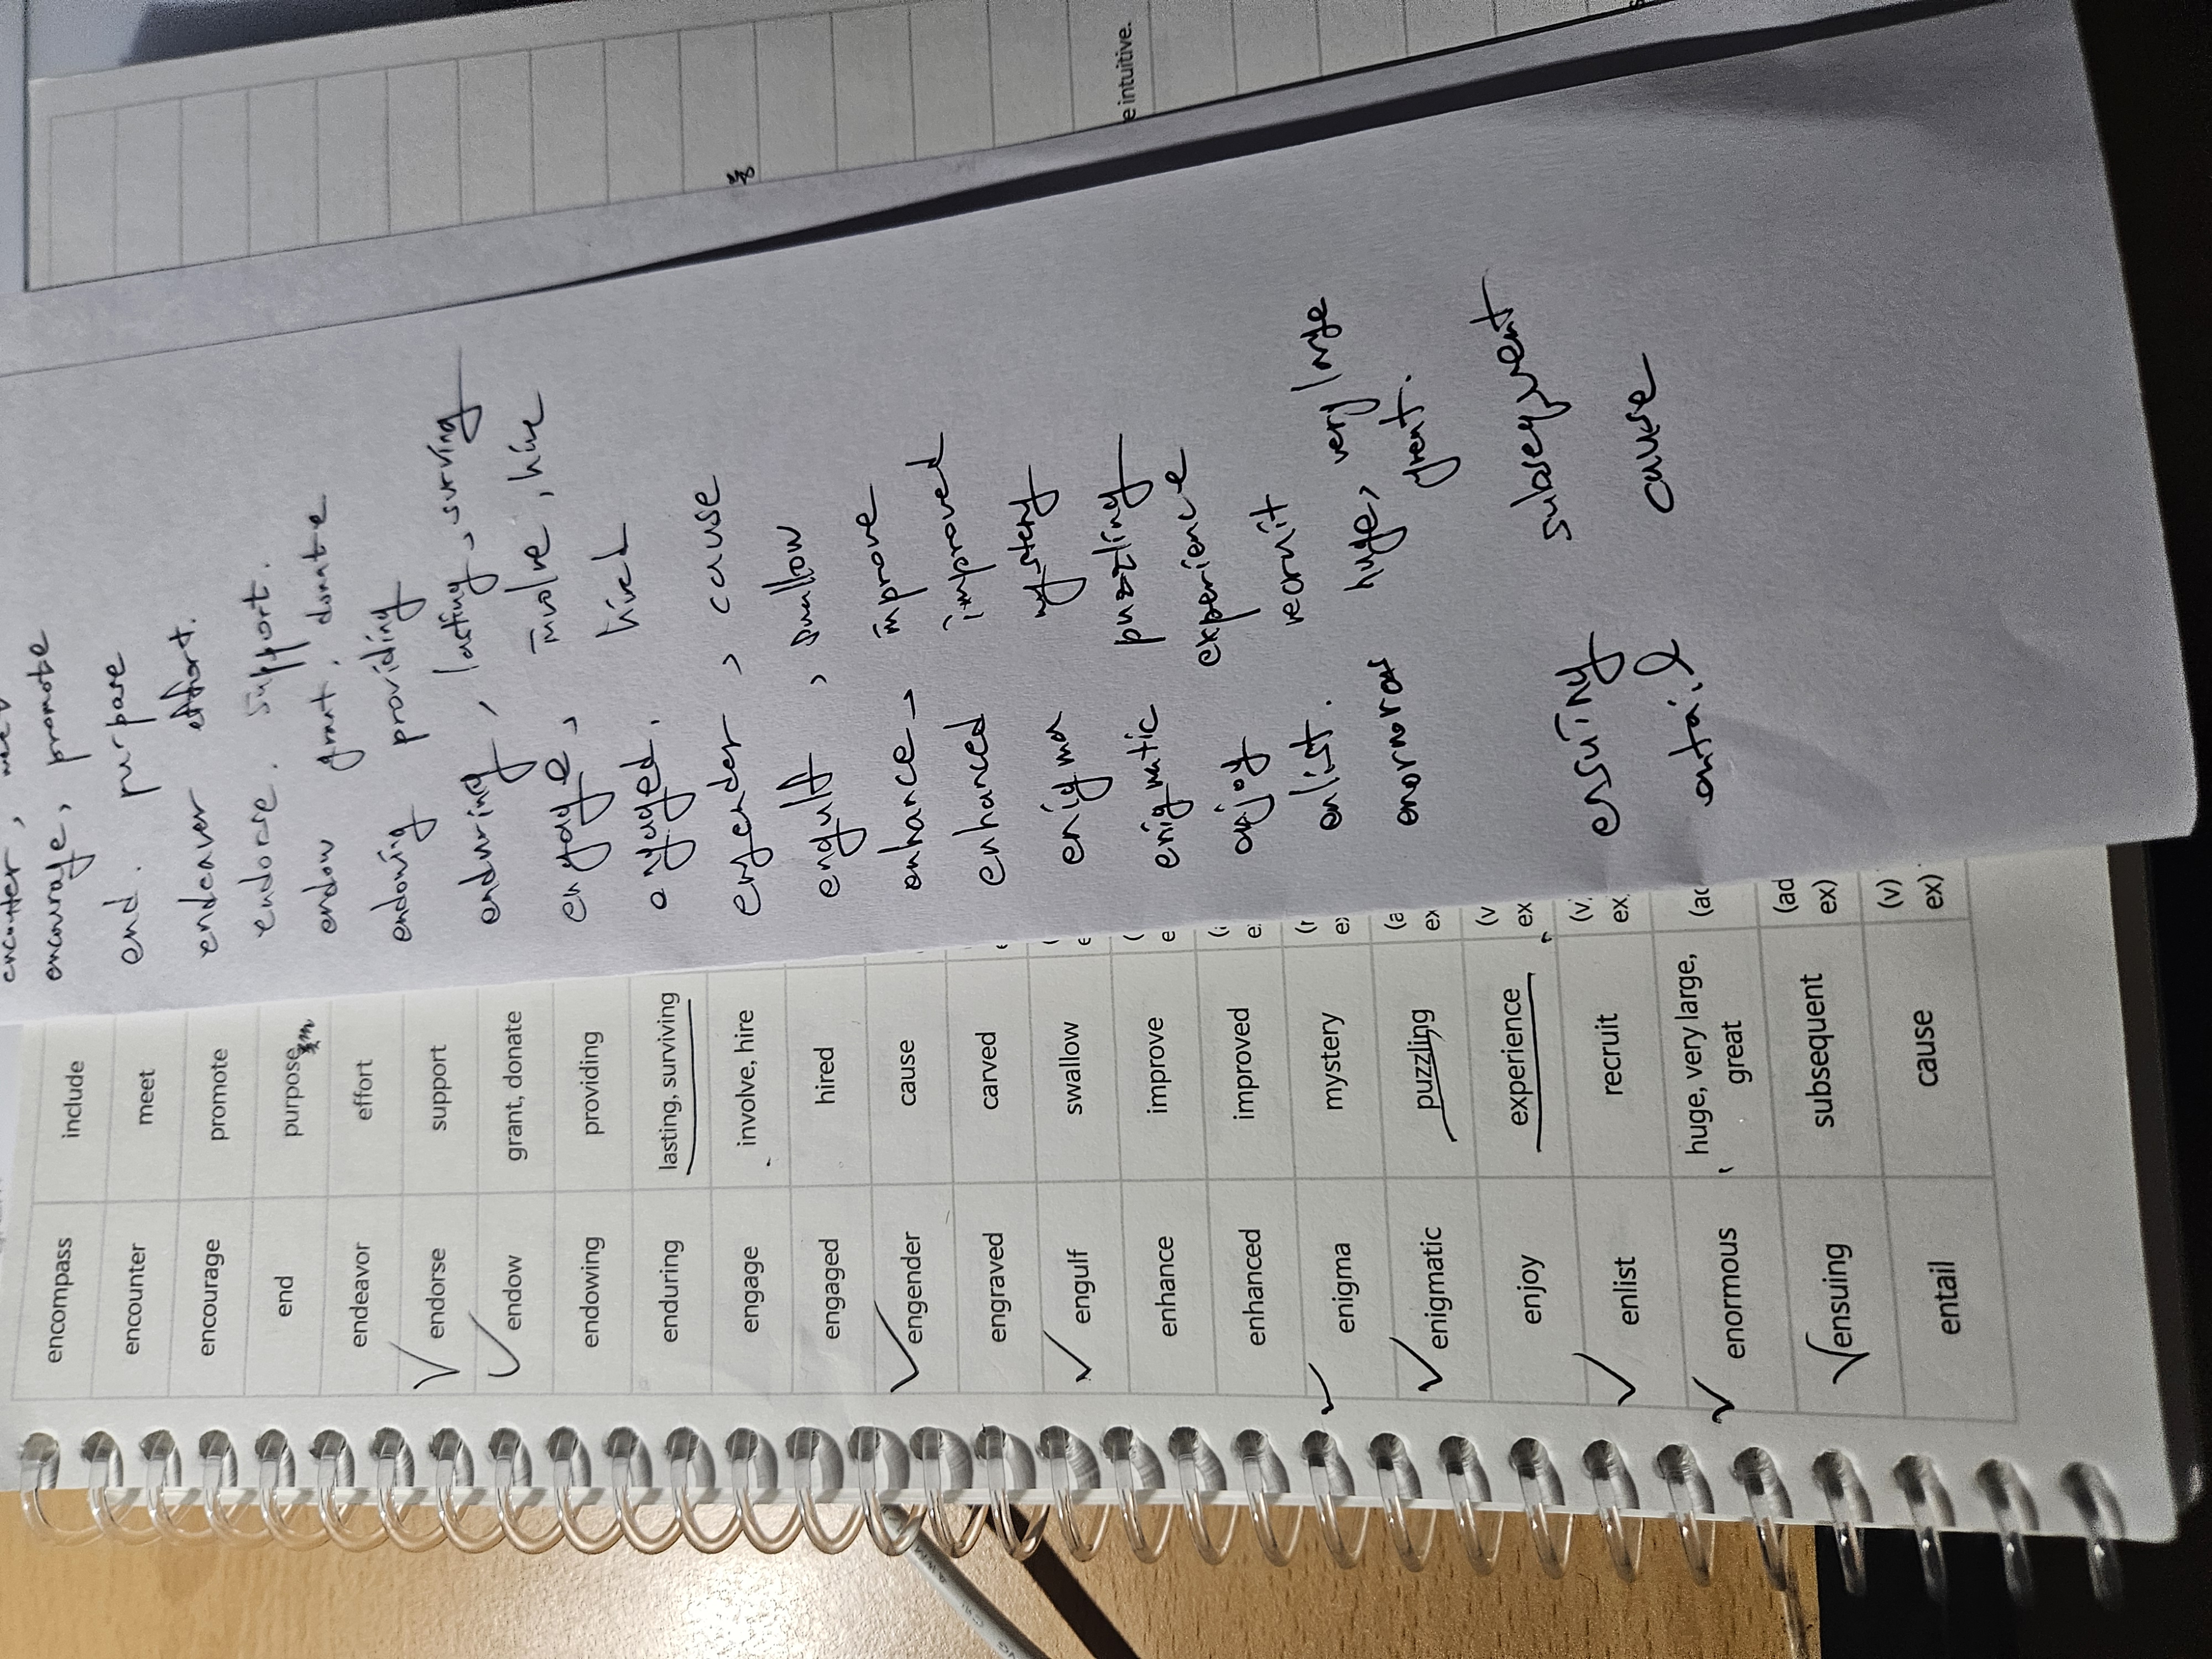 encompass include
encounter meet
encourage promote
end purpose
endeavor effort
endorse support
endow grant, donate
endowing providing
enduring lasting, surviving
engage involve, hire
engaged hired
engender cause
engraved carved
engulf swallow
enhance improve
enhanced improved
enigma mystery
enigmatic puzzling
enjoy experience
enlist recruit
enormous huge, very large,
great
ensuing subsequent
entail cause
(v
ex
(v
ex
(ad
ex)
(v)
ex)
encounter,
encourage, promote
end. purpose
endeaver effort.
endorse. support.
endow grant, donate
endowing providing
enduring, lasting, surving
engage, involve, hire
engaged. hired
engender, cause
engulf, swallow
enhance, improve
enhanced improved
enigma mystery
enigmatic puzzling
enjoy experience
enlist. recruit
huge, very large
great.
ensuing subsequent
entail cause
e intuitive.